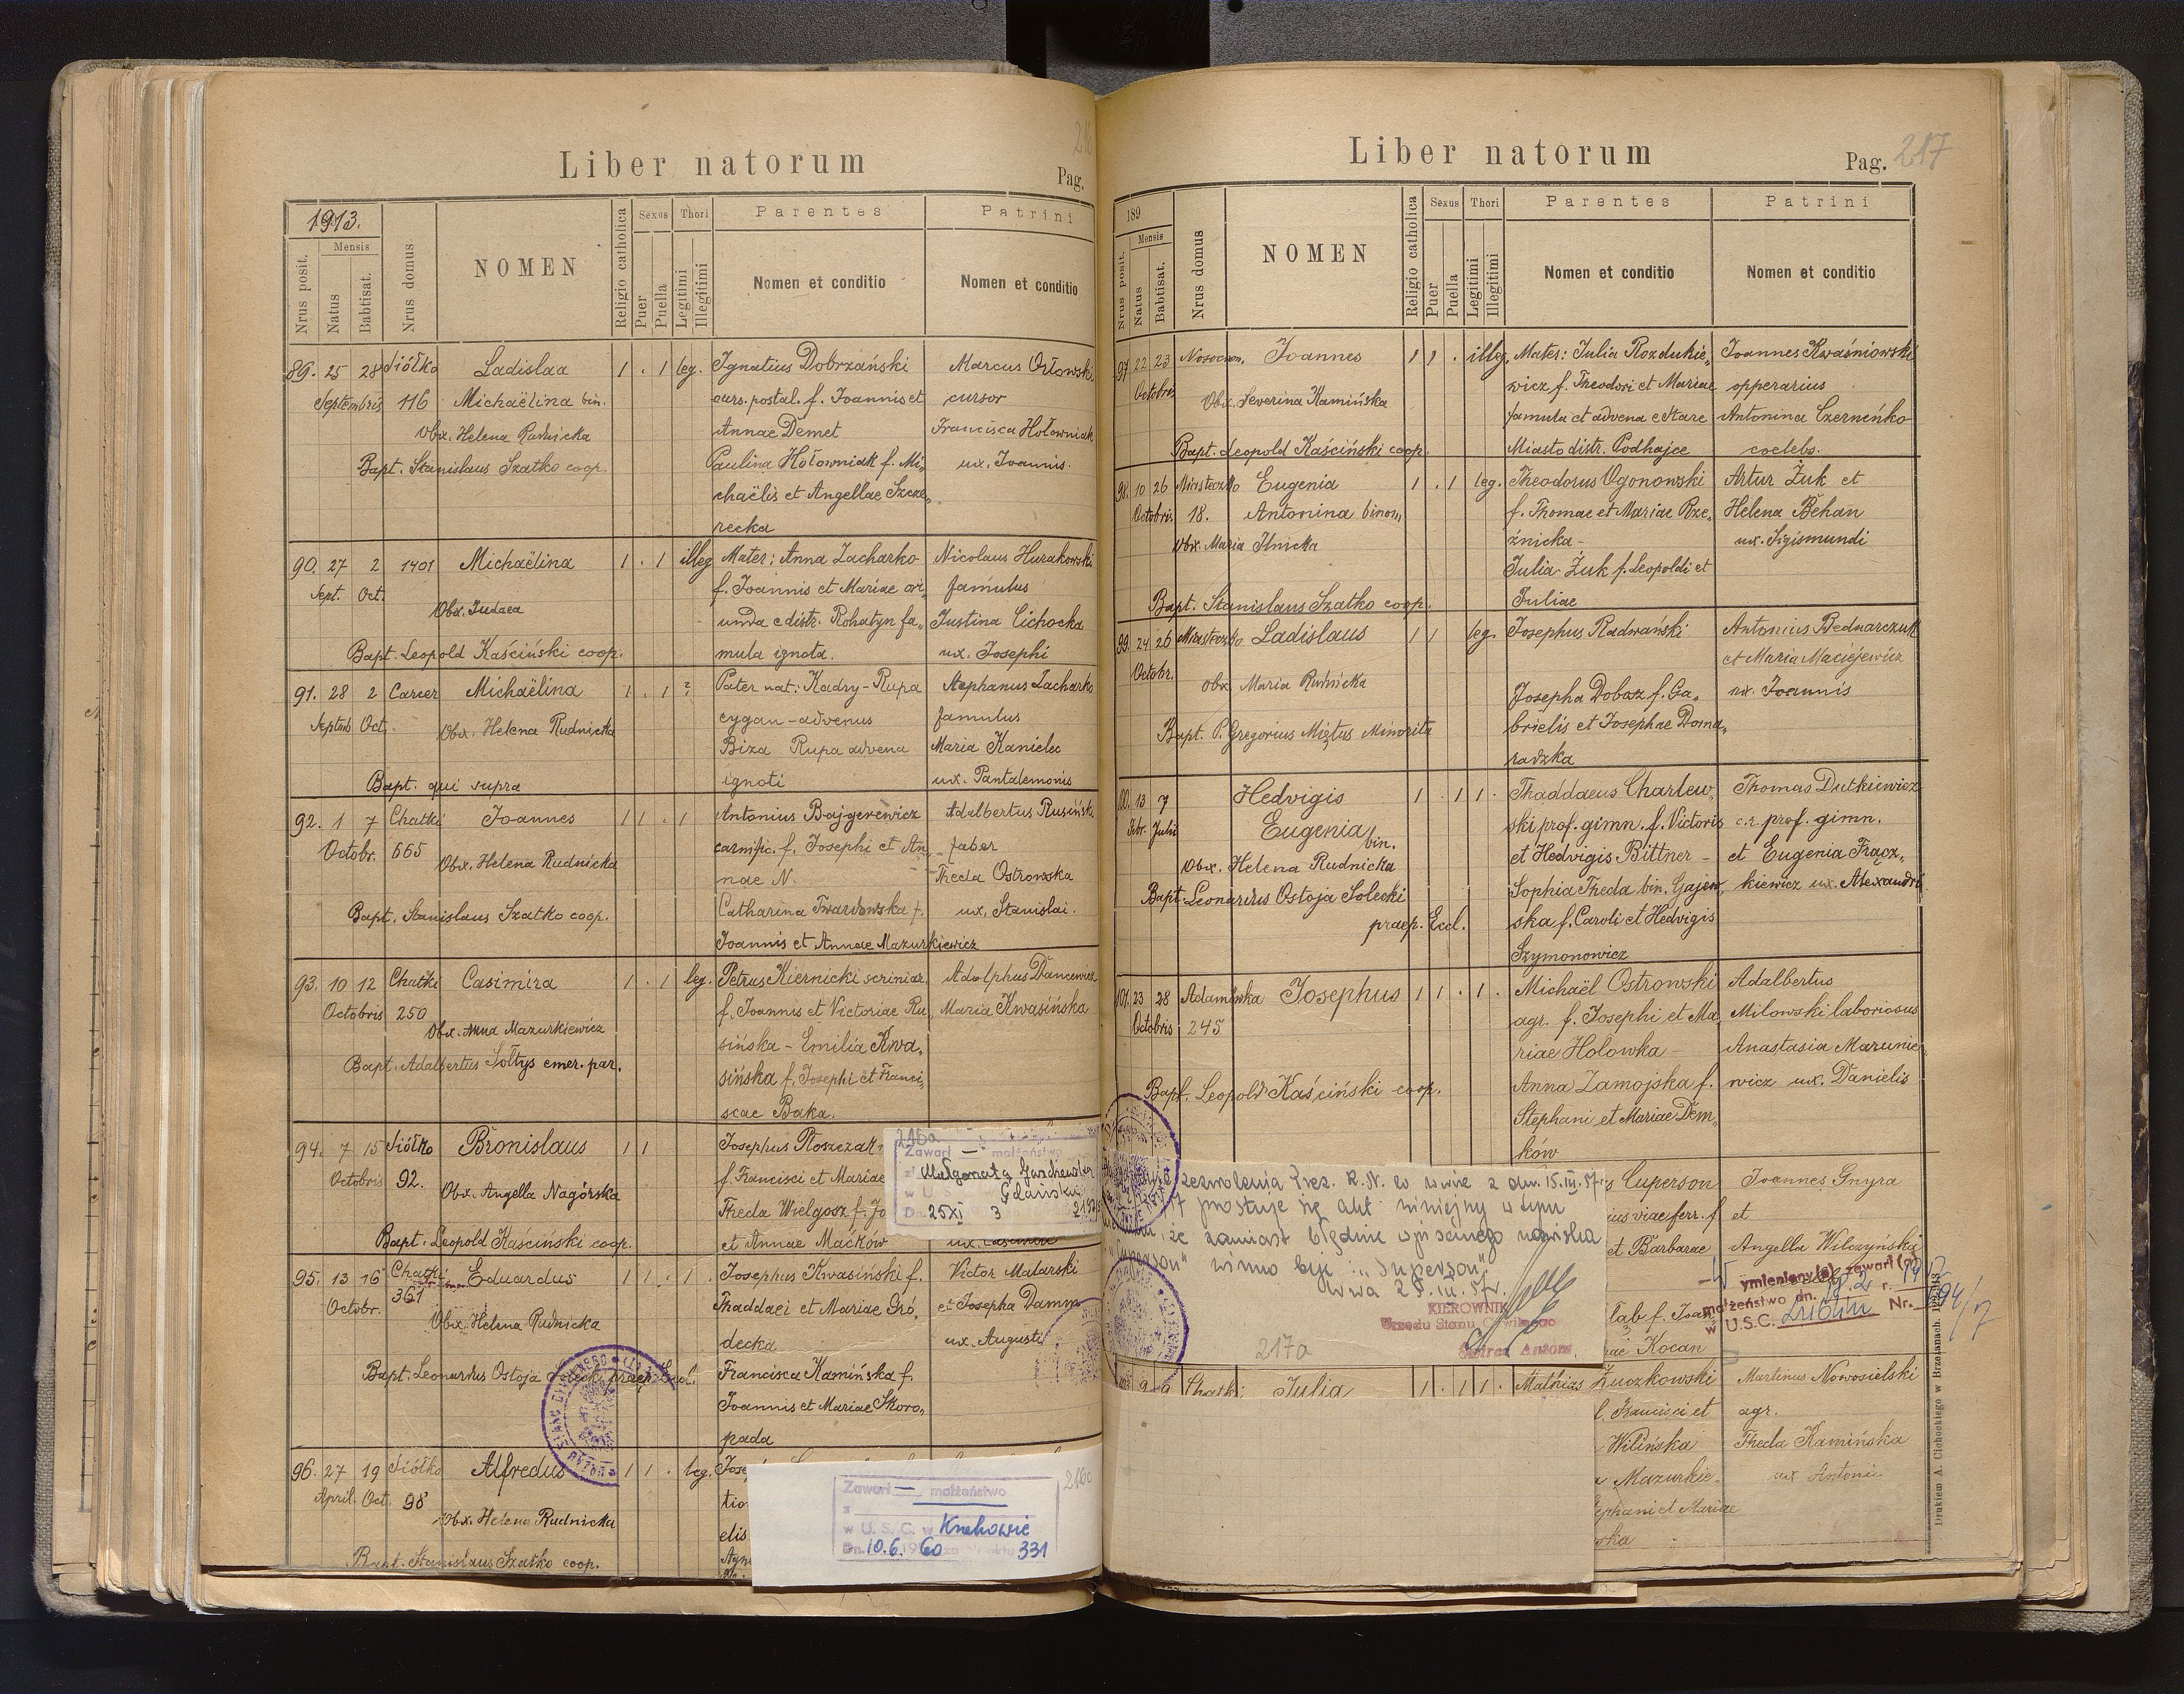 Liber natorum
Pag.
1913.
Nrus posit.
Mensis
Natus
Babtisat.
Nrus domus
NOMEN
Religio catholica
Sexus
Puer
Puella
Thori
Legitimi
Illegitimi
Parentes
Nomen et conditio
Patrini
Nomen et conditio
89. 25 28 Siółko Ladislaa 1 . 1 leg. Ignatius Dobrzański Marcus Orłowski
Septembris 116 Michaëlina bin. curs. postal. f. Joannis et cursor
Obx. Helena Rudnicka Annae Demet Francisca Hołowniak
Bapt. Stanislaus Szatko coop. Paulina Hołowniak f. Mi„ ux. Joannis.
chaëlis et Angellae Szcze„
recka
90. 27 2 1401 Michaëlina 1 . 1 illeg Mater: Anna Zacharko Nicolaus Hurakowski
Sept. Oct. f. Joannis et Mariae ori„ famulus
Obx. Judaea unda e distr. Rohatyn fa„ Justina Cichocka
Bapt. Leopold Kaściński coop. mula ignota. ux. Josephi
91. 28 2 Carcer Michaëlina 1 . 1 ? Pater nat: Kadry-Rupa Stephanus Zacharko
Septemb. Oct. Obx. Helena Rudnicka cygan-advenus famulus
Biza Rupa advena Maria Kanielec
Bapt. qui supra ignoti ux. Pantalemonis
92. 1 7 Chatki Joannes 1 1 . 1 Antonius Bajgerewicz Adalbertus Rusiński
Octobr. 665 Obx. Helena Rudnicka carnific. f. Josephi et An„ faber
nae N. Thecla Ostrowska
Bapt. Stanislaus Szatko coop. Catharina Twardowska f. ux. Stanislai.
Joannis et Annae Mazurkiewicz
93. 10 12 Chatki Casimira 1 . 1 leg. Petrus Kiernicki scriniar. Adolphus Dancewicz
Octobris 250 f. Joannis et Victoriae Ru„ Maria Kwasińska
Obx. Anna Mazurkiewicz sińska - Emilia Kwa„
Bapt. Adalbertus Sołtys emer. par. sińska f. Josephi et Franci„
scae Baka.
94. 7 15 Siółko Bronislaus 1 1 Josephus Płoszczak
Octobris 92. f. Francisci et Mariae
Obx. Angella Nagórska Thecla Wielgosz f. Jo
Bapt. Leopold Kaściński coop. et Annae Maćków
216a
Zawarł — małżeństwo
z Małgorzatą
w U S Gdańsku
Dn. 25 XI
95. 13 16 Chatki Eduardus 1 1 . 1 . Josephus Kwasiński f. Victor Malarski
Octobr. 361 Thaddaei et Mariae Gró„ et Josepha Damm
Obx. Helena Rudnicka decka ux. Augusti
Bapt. Leonardus Ostoja Francisca Kamińska f.
Joannis et Mariae Skoro„
pada
96. 27 19 Siółko Alfredus 1 1 . leg. Jose
April. Oct. 98 tio
Obx. Helena Rudnicka elis
Bapt. Stanislaus Szatko coop.
Zawarł — małżeństwo
z
w U. S. C. w Krakowie
Dn. 10.6.1960 za Nr aktu 331
Liber natorum
Pag. 217
189
Nrus posit.
Mensis
Natus
Babtisat.
Nrus domus
NOMEN
Religio catholica
Sexus
Puer
Puella
Thori
Legitimi
Illegitimi
Parentes
Nomen et conditio
Patrini
Nomen et conditio
97 22 23 Nosocom. Joannes 1 1 . illeg. Mater: Julia Rozdukie„ Joannes Kwaśniowski
Octobris wicz f. Theodori et Mariae opperarius
Obx. Severina Kamińska famula et advena e Stare Antonina Czerneńko
Bapt. Leopold Kaściński coop. Miasto distr. Podhajce coelebs.
98. 10 26 Miasteczko Eugenia 1 . 1 leg. Theodorus Ogonowski Artur Żuk et
Octobris 18. Antonina binom„ f. Thomae et Mariae Rze„ Helena Behan
Obx. Maria Ilnicka źnicka - ux. Sigismundi
Julia Żuk f. Leopoldi et
Bapt. Stanislaus Szatko coop. Juliae
99. 24 26 Miasteczko Ladislaus 1 1 leg. Josephus Radwański Antonius Bednarczuk
Octobr. et Maria Maciejewicz
Obx Maria Rudnicka Josepha Dobosz f. Ga„ ux. Joannis
Bapt. P. Gregorius Miętus Minorita brielis et Josephae Doma„
radzka
100. 13 7 Hedvigis 1 . 1 1 . Thaddaeus Charlew„ Thomas Dutkiewicz
Febr. Julii Eugenia bin. ski prof. gimn. f. Victoris c.r. prof. gimn.
Obx. Helena Rudnicka et Hedvigis Bittner - et Eugenia Frącz„
Bapt. Leonardus Ostoja Solecki Sophia Thecla bin. Gajew„ kiewicz ux. Alexandri
praep. Eccl. ska f. Caroli et Hedvigis
Szymonowicz
101. 23 28 Adamówka Josephus 1 1 . 1 . Michaël Ostrowski Adalbertus
Octobris 245 agr. f. Josephi et Ma„ Milowski laboriosus
riae Holowka - Anastasia Marunie„
Bapt. Leopold Kaściński coop. Anna Zamojska f. wicz ux. Danielis
Stephani et Mariae Dem„
ków
zezwolenia Prez. R.N. w W-wie z dn. 15.III.57
prostuje się akt niniejszy w tym
że zamiast błędnie wpisanego nazwiska
winno być: „Superson"
W-wa 28.III.57r.
KIEROWNIK
Urzędu Stanu Cywilnego
217a
Cuperson Joannes Gnyra
ius viae ferr. f. et
et Barbarae Angella Wilczyńska
lab f. Joan
Kocan
wymieniony(a) zawarł(a)
małżeństwo dn.
w U.S.C. Lublin Nr.
9 6 Chatki Julia 1 . 1 1 . Mathias Zuczkowski Martinus Nowosielski
f. Francisci et agr.
Wilińska Thecla Kamińska
Mazurkie„ ux Antonii
Stephani et Mariae
Drukiem A. Cichockiego w Brzeżanach.